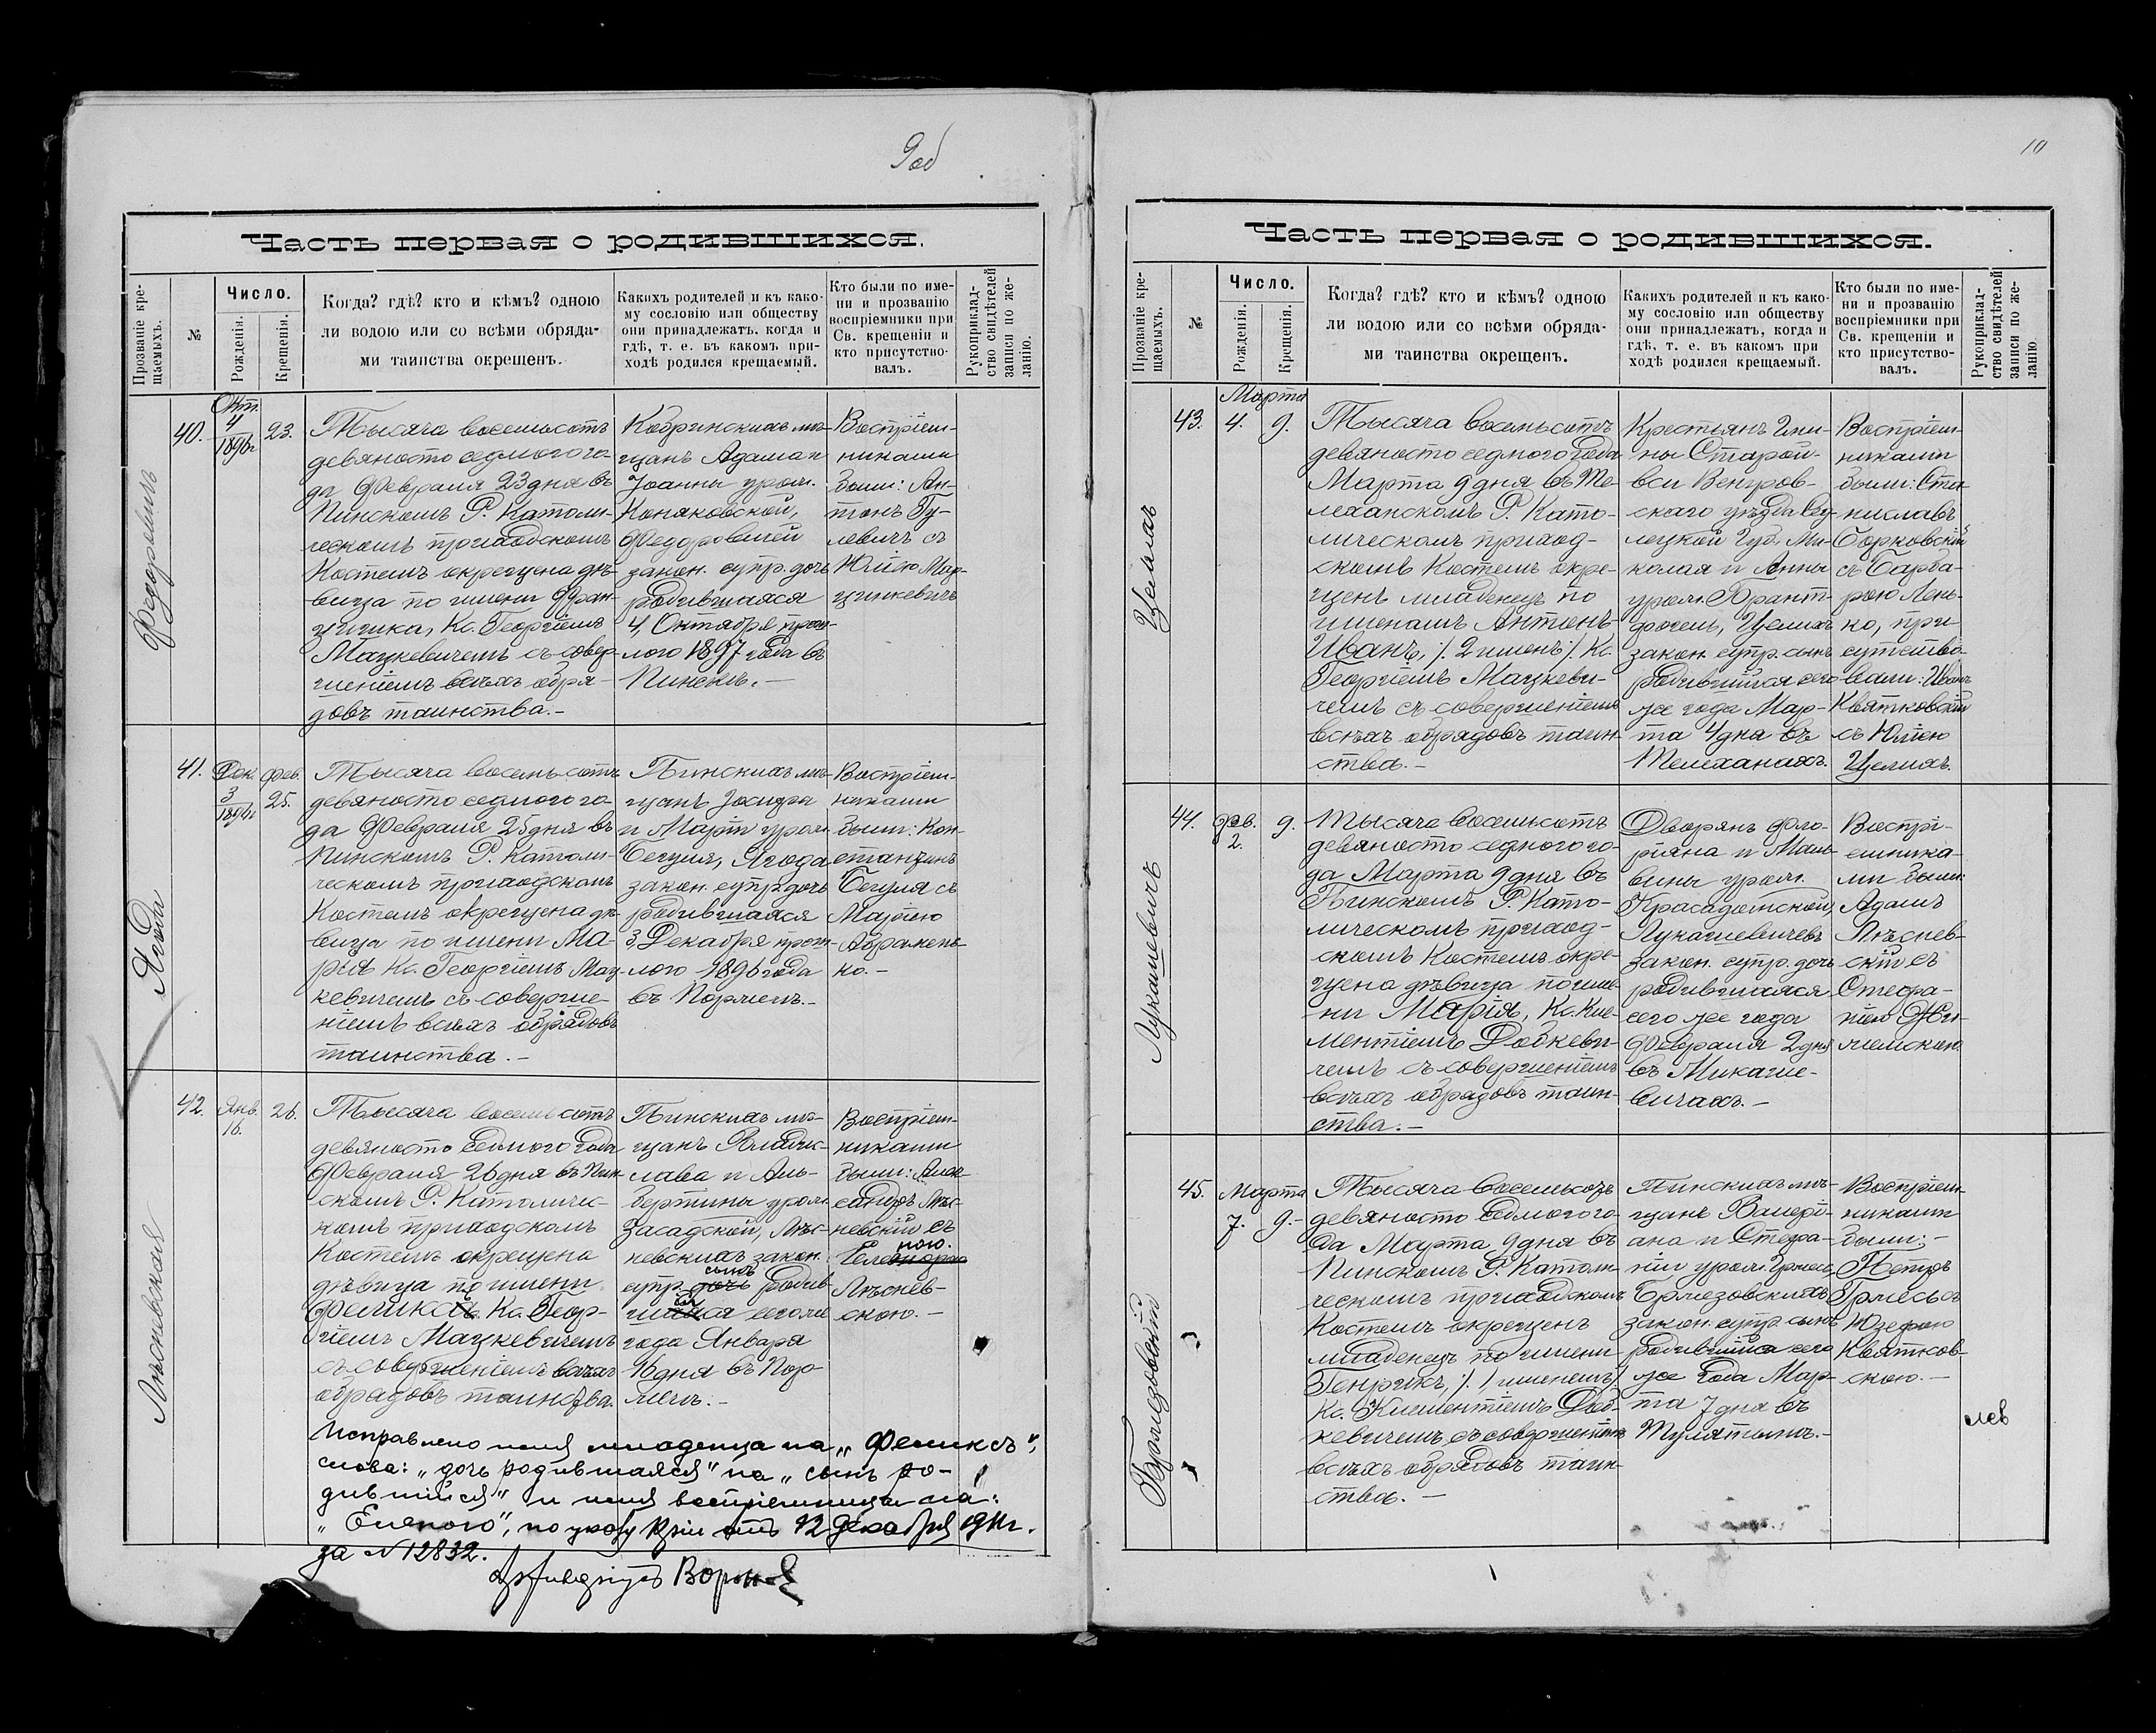 9 об
Часть первая о родившихся.
Прозваніе крещаемыхъ.
№
Число.
Рожденія.
Крещенія.
Когда? гдѣ? кто и кѣмъ? одною
ли водою или со всѣми обряда-
ми таинства окрещенъ.
Какихъ родителей и къ како-
му сословію или обществу
они принадлежатъ. когда и
гдѣ, т. е. въ какомъ при-
ходѣ родился крещаемый.
Кто были по име-
ни и прозванію
воспріемники при
Св. крещеніи и
кто присутство-
валъ.
Рукоприклад-
ство свидѣтелей
записи по же-
ланію.
Федоровичъ
40.
Окт.
4
1896г
23.
Тысяча восемьсотъ
девяносто седмого го-
да Февраля 23 дня въ
Пинскомъ Р. Католи-
ческомъ приходскомъ
Костелѣ окрещена дѣ-
вица по имени Фран-
цишка, Кс. Георгіемъ
Мацкевичемъ съ совер-
шеніемъ всѣхъ обря-
довъ таинства.-
Кобринскихъ мѣ-
щанъ Адама и
Іоанны урож.
Коняковской,
Федоровичей
закон. супр. дочь
родившаяся
4, Октября прош-
лого 1897 года въ
Пинскѣ.-
Воспріем-
никами
были: Ан-
тонъ Гу-
левичъ съ
Юліею Мар-
цинкевичъ
Ягода
41.
Дек.
3
1896г
Фев.
25.
Тысяча восемьсотъ
девяносто седмого го-
да Февраля 25 дня въ
Пинскомъ Р. Католи-
ческомъ приходскомъ
Костелѣ окрещена дѣ-
вица по имени Ма-
рія Кс. Георгіемъ Мац-
кевичемъ съ соверше-
ніемъ всѣхъ обрядовъ
таинства.-
Пинскихъ мѣ-
щанъ Іосифа
и Маріи урож.
Бегуля, Ягода
закон. супр. дочь
родившаяся
3 Декабря прош-
лого 1896 года
въ Порѣчьѣ.-
Воспріем-
никами
были: Кон-
стантинъ
Бегуля съ
Маріею
Абрамень-
ко.-
Лѣсневская
42.
Янв.
16.
26.
Тысяча восемьсотъ
девяносто седмого года
Февраля 26 дня въ Пин-
скомъ Р. Католичес-
комъ приходскомъ
Костелѣ окрещена
дѣвица по имени
Феликсъ Кс. Геор-
гіемъ Мацкевичемъ
съ совершеніемъ всѣхъ
обрядовъ таинства.
Пинскихъ мѣ-
щанъ Владис-
лава и Аль-
бертины урож.
Засадской, Лѣс-
невскихъ закон.
супр. дочь сынъ родив-
шійся сего же
года Января
16 дня въ Пор-
ѣчьѣ.-
Воспріем-
никами
были: Алек-
сандръ Лѣс-
невскій съ
Еленою
Лѣснев-
скою.-
Исправлено имя младенца на „Феликсъ",
слова: „дочь родившаяся" на „сынъ ро-
дившійся" и имя воспріемницы на:
„Еленою", по указу Кріи отъ 12 Декабря 1911г.
за №12832.
10
Часть первая о родившихся.
Прозваніе крещаемыхъ.
№
Число.
Рожденія.
Крещенія.
Когда? гдѣ? кто и кѣмъ? одною
ли водою или со всѣми обряда-
ми таинства окрещенъ.
Какихъ родителей и къ како-
му сословію или обществу
они принадлежатъ, когда и
гдѣ, т. е. въ какомъ при
ходѣ родился крещаемый.
Кто были по име-
ни и прозванію
воспріемники при
Св. крещеніи и
кто присутство-
валъ.
Рукоприклад-
ство свидѣтелей
записи по же-
ланію.
Целихъ
43.
Марта
4.
9.
Тысяча восемьсотъ
девяносто седмого года
Марта 9 дня въ Те-
леханскомъ Р. Като-
лическомъ приход-
скомъ Костелѣ окре-
щенъ младенецъ по
именамъ Антонъ-
Иванъ, /. 2 именъ / Кс.
Георгіемъ Мацкеви-
чемъ съ совершеніемъ
всѣхъ обрядовъ таин-
ства.-
Крестьянъ Гми-
ны Старой-
вси Венгров-
скаго уѣзда Сѣд-
лецкой Губ. Ни-
колая и Анны
урож. Брант-
Целихъ
закон. супр. сынъ
родившійся сего
же года Мар-
та 4 дня въ
Телеханахъ.
Воспріем-
никами
были: Ста-
ниславъ
Борковскій
съ Барба-
рою Лень-
ко, при
сутство-
вали: Иванъ
Квятковскій
съ Юліею
Целихъ.
Лукашевичъ
44.
Фев.
2.
9.
Тысяча восемьсотъ
девяносто седмого го-
да Марта 9 дня въ
Пинскомъ Р. Като-
лическомъ приход-
скомъ Костелѣ окре-
щена дѣвица по име-
ни Марія, Кс. Кле-
ментіемъ Добкеви-
чемъ съ совершеніемъ
всѣхъ обрядовъ таин-
ства.-
Дворянъ Фло-
ріяна и Маль-
вины урож.
Лукашевичевъ
закон. супр. дочь
родившаяся
сего же года
Февраля 2 дня
въ Микаше-
вичахъ.-
Воспрі-
емника-
ми были:
Адамъ
Лѣснев-
скій съ
Стефа-
ніею
Бржозовскій
45.
Марта
7.
9.-
Тысяча восемьсотъ
девяносто седмого го-
да Марта 9 дня въ
Пинскомъ Р. Католи-
ческомъ приходскомъ
Костелѣ окрещенъ
младенецъ по имени
Генрикъ, /. 1 именемъ /
Кс. Клементіемъ Доб-
кевичемъ съ совершеніемъ
всѣхъ обрядовъ таин-
ства.-
Пинскихъ мѣ-
щанъ Валері-
ана и Стефа-
ніи урож. Гржесь,
Бржозовскихъ
закон. супр. сынъ
родившійся сего
же года Мар-
та 7 дня въ
Воспріем-
никами
были:-
Петръ
Гржесь съ
Юзефою
Квятков-
скою.-
лев